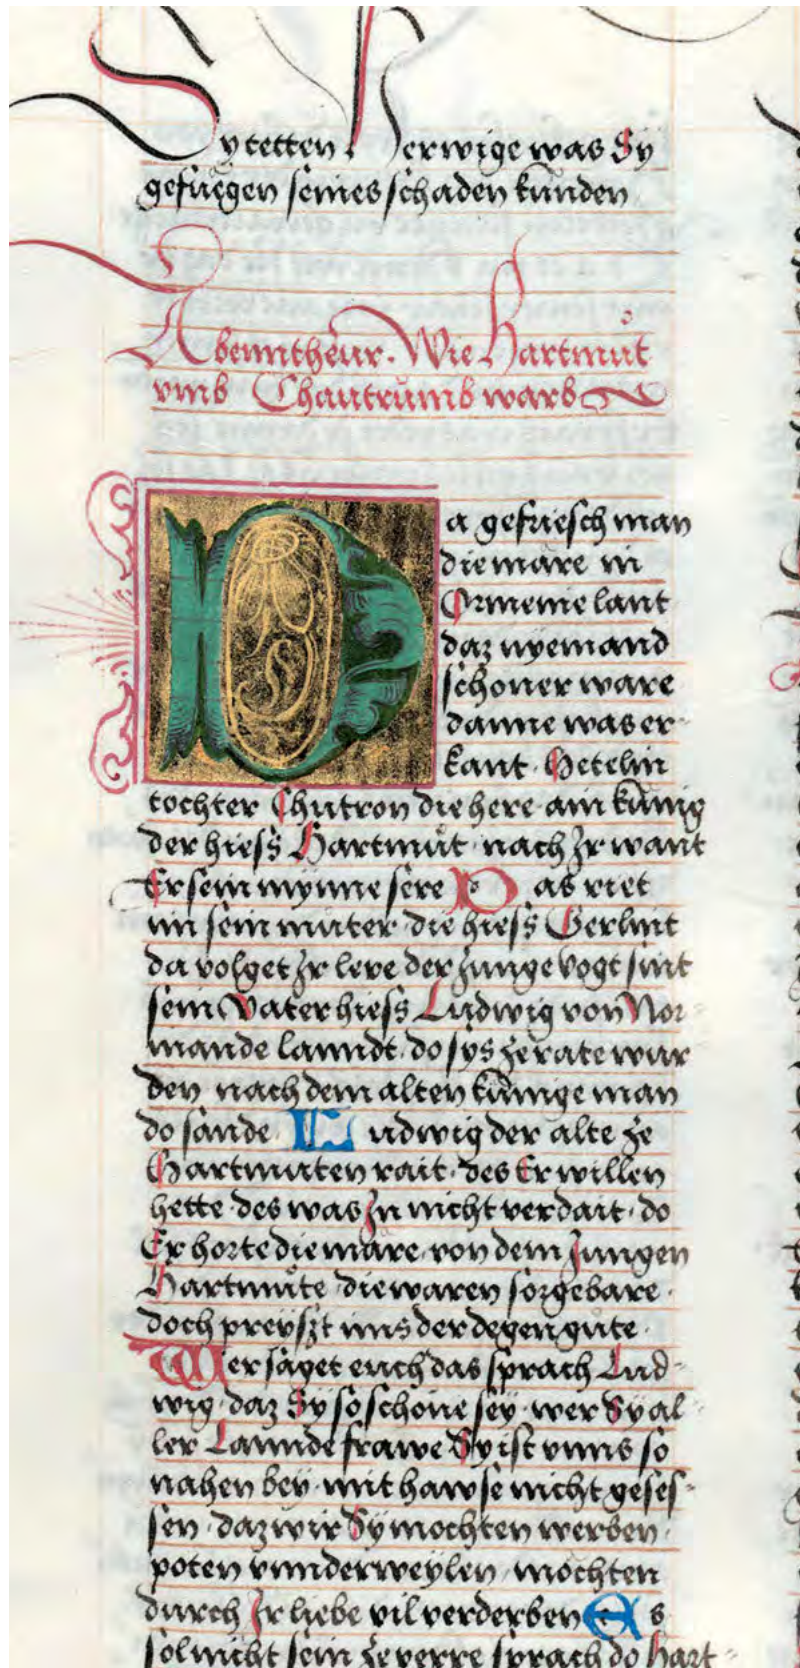 Sy tetten Herwige was Sy
gefuegen seines schaden kunden
Abenntheur. Wie Hartmůt
vmb Chautrumb warb
Da gefriesch man
die märe in
Ormenie lant
daz nyemand
schoner ware
danne was er-
kant Hetelin
tochter Chutron die here ain kůnig
der hiess Hartmůt nach Ir want
Er sein mynne sere Das riet
im sein můter die hiess Gerlint
da volget Ir lere der Junge vogt sint
sein Vater hiess Ludwig von Nor-
mande lanndt do sys ze rate wur
den nach dem alten kůnige man
do sande Ludwig der alte ze
Hartmuten rait des Er willen
hette des was In nicht verdait do
Er horte die märe von dem Jungen
Hartmůte die waren sorgebare
doch preyszt uns der degen gůte
Wer saget euch das sprach Lud-
wig daz Sy so schöne sey wer Sy al-
ler Lannde frawe Sy ist vnns so
nahen bey mit hawse nicht geses-
sen daz wir Sy mochten werben
poten vnnderweylen mochten
durch Ir liebe vil verderben Es
sol nicht sein ze verre sprach do Hart-